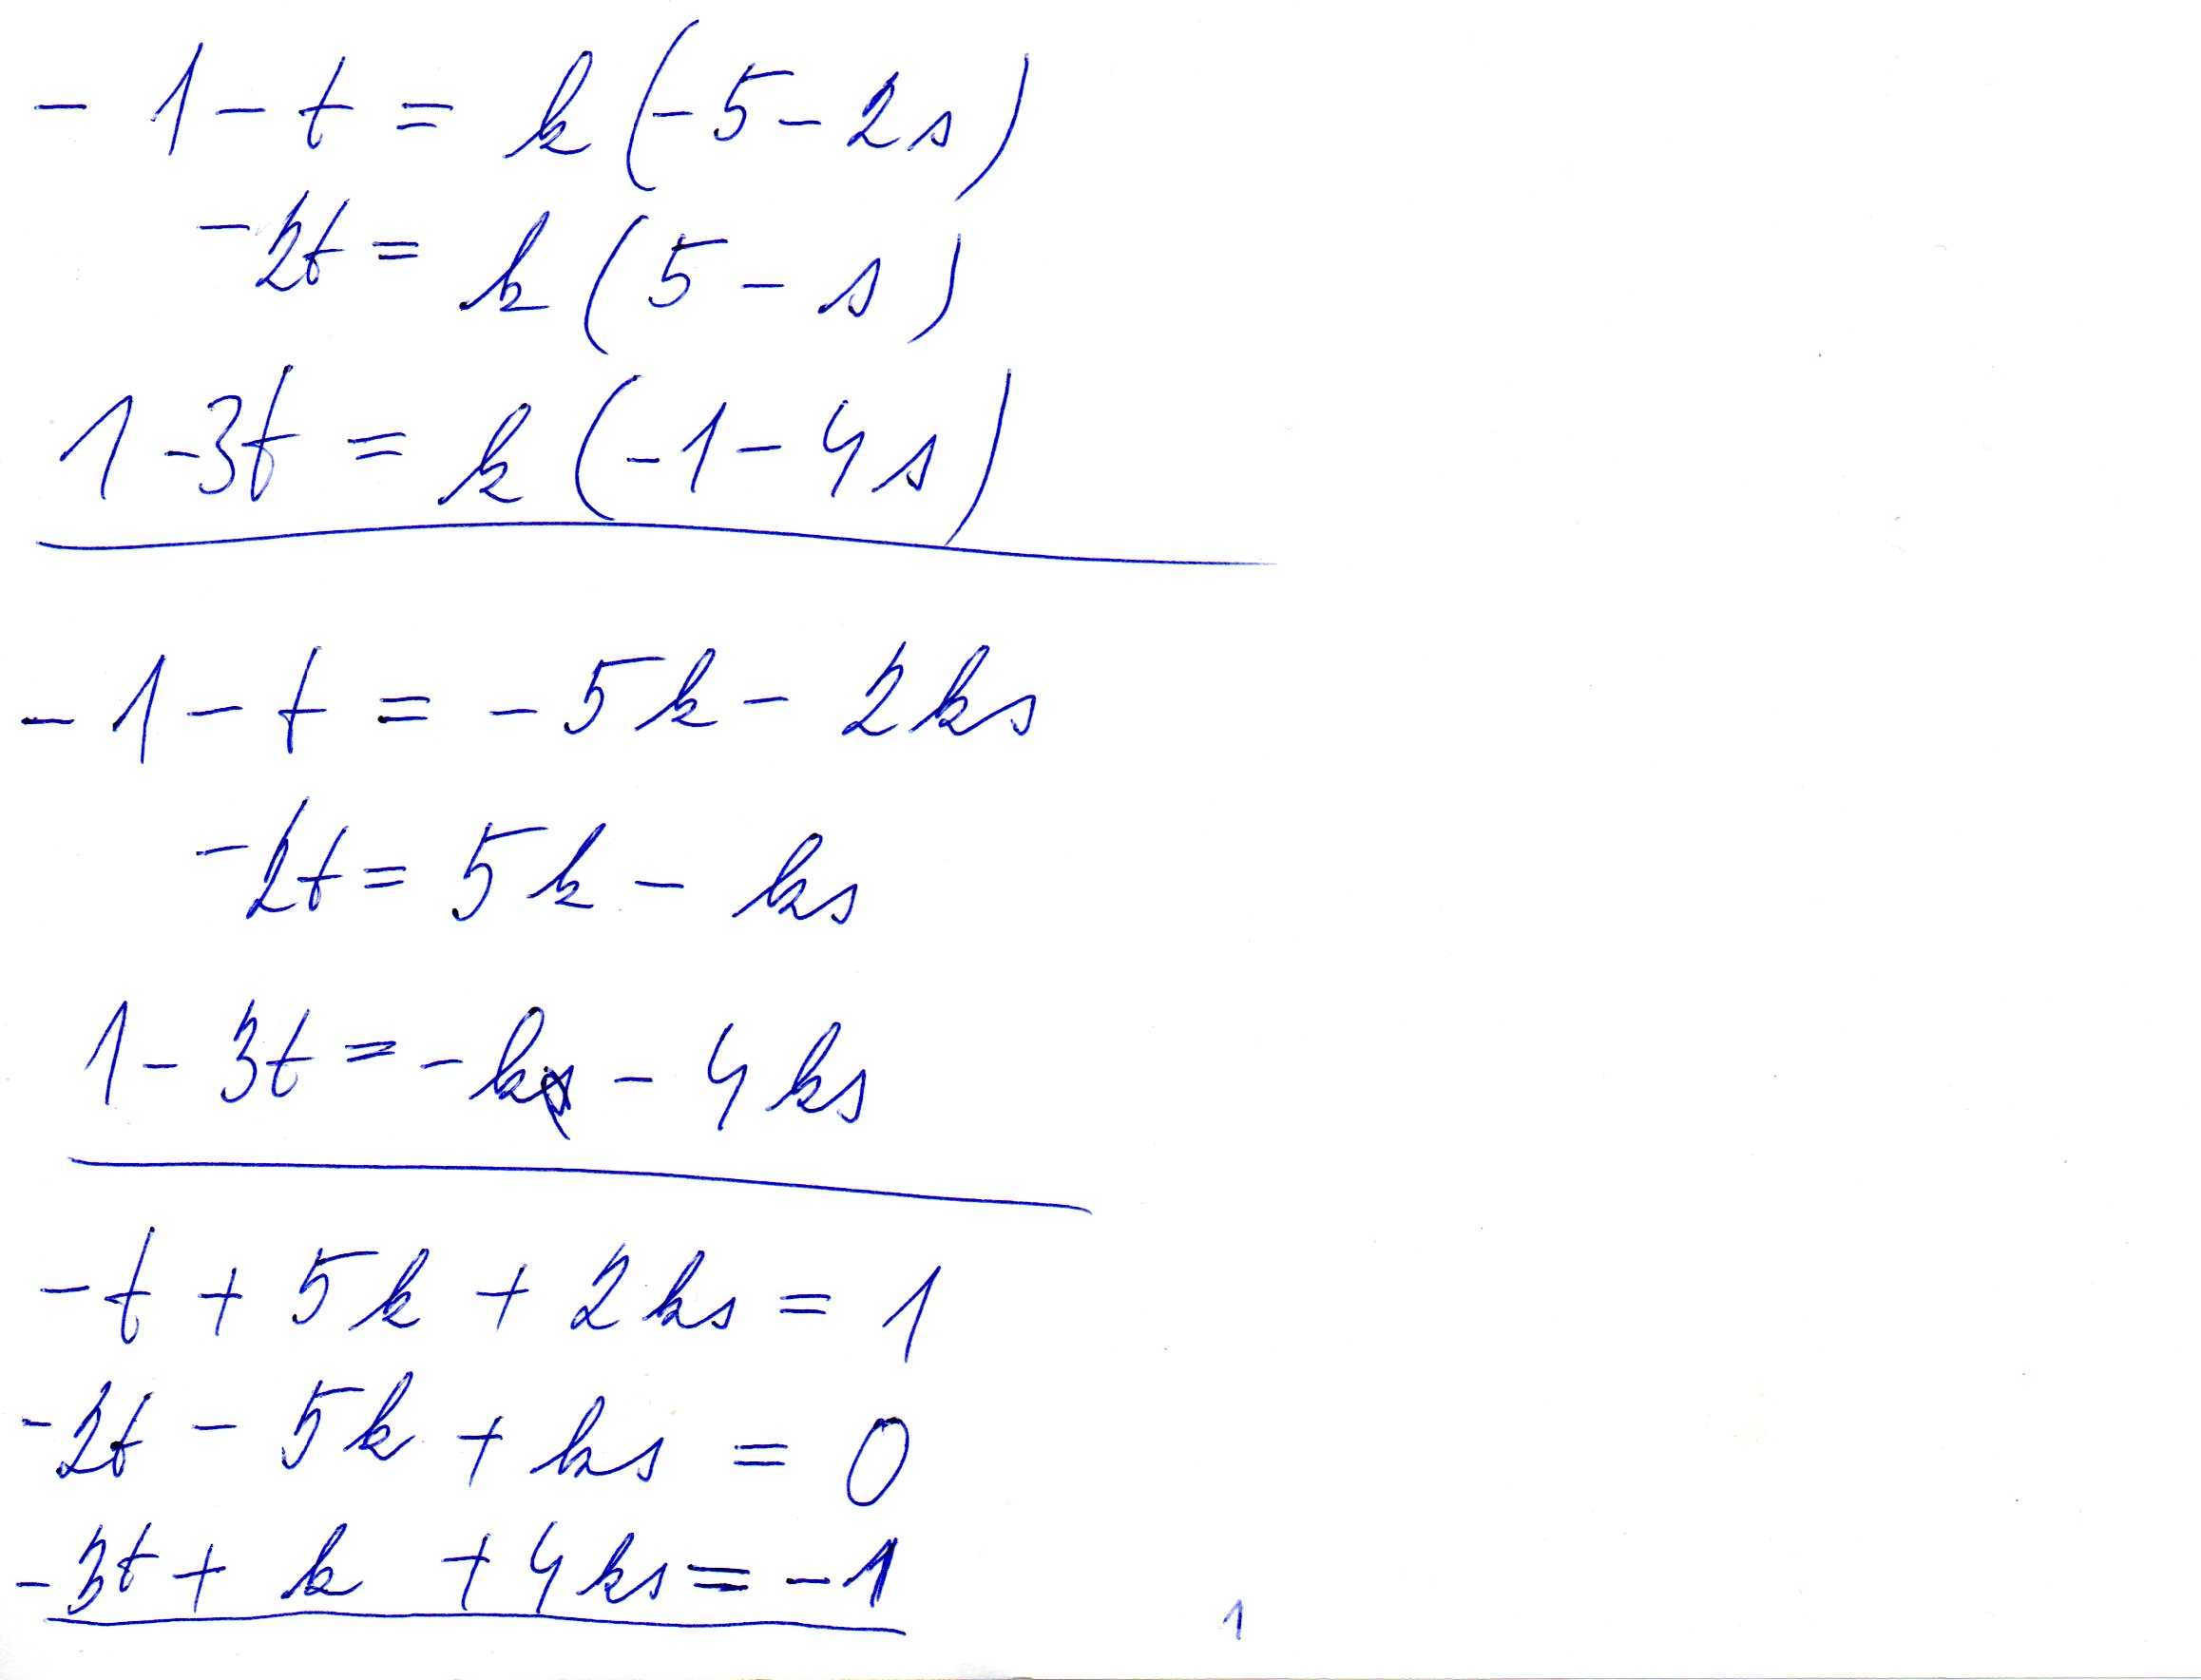 - 1 - t = k(-5 - 2s)
-2t = k(5 - s)
1 - 3t = k(-1 - 4s)
- 1 - t = - 5k - 2ks
-2t = 5k - ks
1 - 3t = - k - 4ks
-t + 5k + 2ks = 1
-2t - 5k + ks = 0
-3t + k + 4ks = -1
1